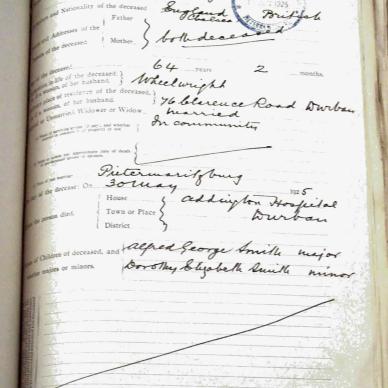 and Nationality of the deceased England British
Father
and Addresses of the
Mother both deceased
of the deceased
64 years 2 months.
in life of the deceased
of her husband. Wheelwright
place of residence of the deceased
of her husband. 76 Clarence Road Durban
Unmarried, Widower or Widow married
In community
Pietermaritzburg
of the deceased: On 30 May 1925
House Addington Hospital
the person died. Town or Place Durban
District
of Children of deceased, and Alfred George Smith major
majors or minors. Dorothy Elizabeth Smith minor